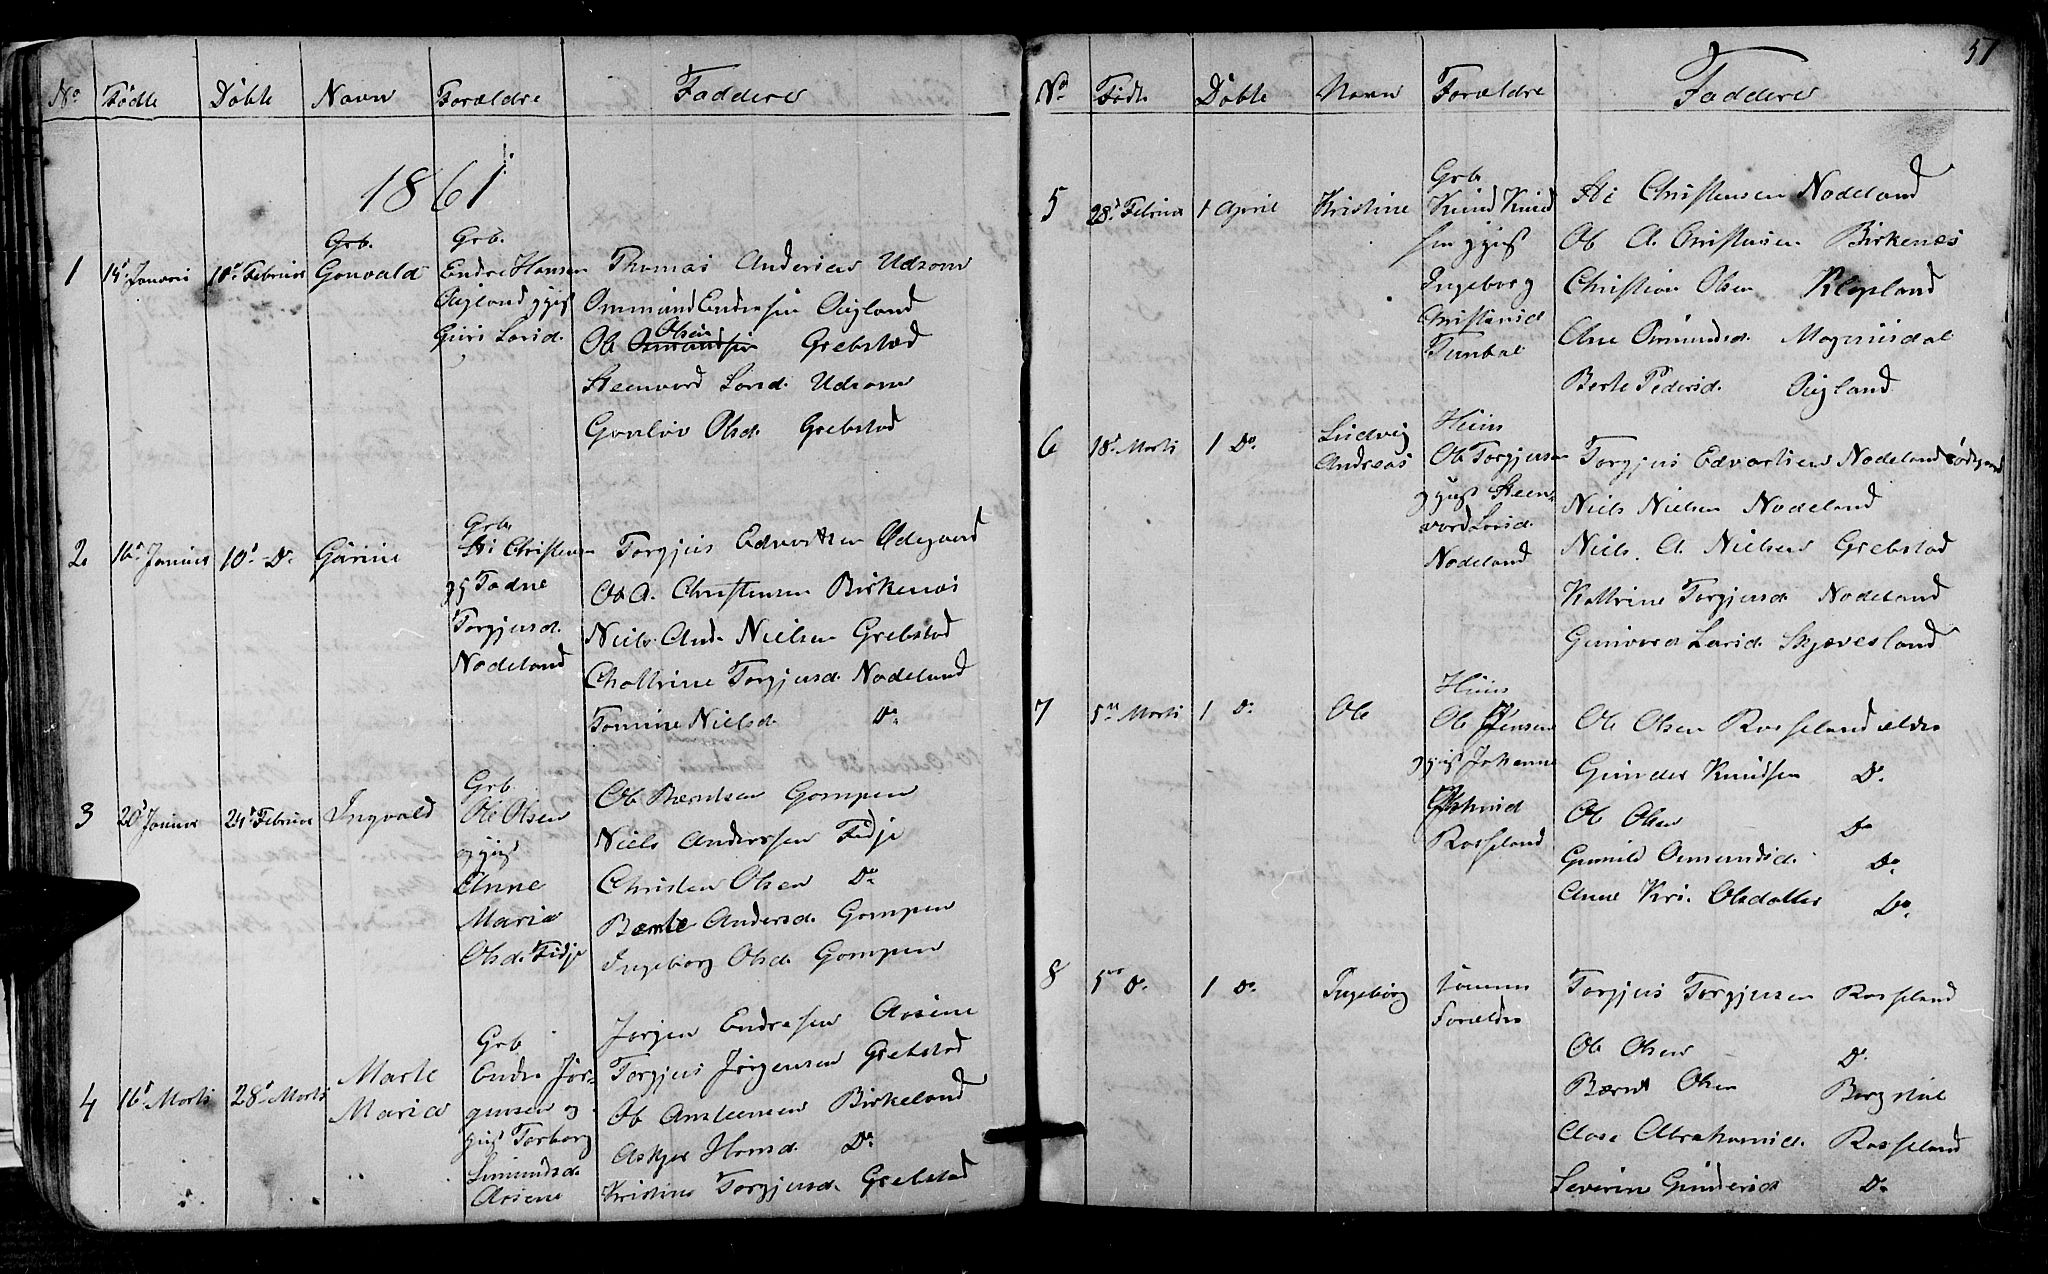 No Fødte Døbte Navn Forældre Faddere
1861
1 14d Januari 10d Februar
Grb.
Gunvald
Grb.
Endre Hansen
Aigland og gift
Guri Larsd.
Thomas Andersen Udsom
Ommund Endresen Aigland
Ole Olsen Grebstad
Steenvord Larsd. Udsom
Gunløv Olsd. Grebstad
2 16d Januar 10d Do Gurine
Grb.
Christensen
og Tadne
Torgjusd.
Nodeland
Torgjus Edvartsen Ødegaard
Ole A. Christensen Birkenæs
Niels And. Nielsen Grebstad
Chattrine Torgjusd. Nodeland
Tomine Nielsd. Do
3 20d Januar 24d Februar Ingvald
Grb.
Ole Olsen
og gift
Anne
Maria
Olsd. Fidje
Ole Berntsen Gompen
Niels Anderssen Fidje
Christen Olsen Do
Bernte Andersd. Gompen
Ingeborg Olsd. Gompen
4 16d Marts 28d Marts
Marte
Maria
Grb
Endre Jør-
gensen og
gift Torborg
Simundsd.
Aasene
Jørgen Endresen Aasene
Torgjus Jørgensen Grebstad
Ole Anstensen Birkeland
Askjer Hansd. Do
Kristine Torgjusd. Grebstad
57
No Fødte Døbte Navn Forældre Faddere
5 28d Februar 1 April Kristine
Grb.
Knud Knud
sen og gift
Ingeborg
Christensd
Tunbal
Christensen Nodeland
Ole A. Christensen Birkenæs
Christian Olsen Klepland
Ane Omundsd. Magnusdal
Berte Pedersd. Aigland
6 18d Marts 1 Do
Ludvig
Andreas
Huus
Ole Torgjusen
og gift Steen-
vord Larsd.
Nodeland
Torgjus Edvartsen Nodeland ødegaard
Niels Nielsen Nodeland
Niels. A. Nielsen Grebstad
Kattrine Torgjusd. Nodeland
Gunvord Larsd. Skjævesland
7 5te Marts 1 Do Ole
Huus
Ole Jensen
og gift Johanne
Rosseland
Ole Olsen Rosseland ældre
Gunder Knudsen Do
Ole Olsen Do
Gunild Omundsd. Do
Anne Kri. Olsdatter Do
8 5te Do 1 Do Ingeborg
samme
Forældre
Torgjus Torgjusen Rosseland
Ole Olsen Do
Bernt Olsen Borgstul
Aase Abrahamsd. Rosseland
Severine Gundersd Do